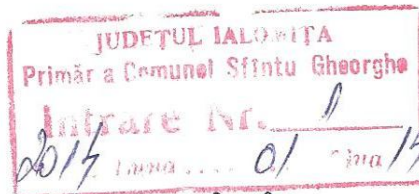 JUDEȚUL IALOMIȚA
Primăr a Comunei Sfîntu Gheorghe
Intrare Nr. 1
2014 Luna ..... 01 Ziua 14